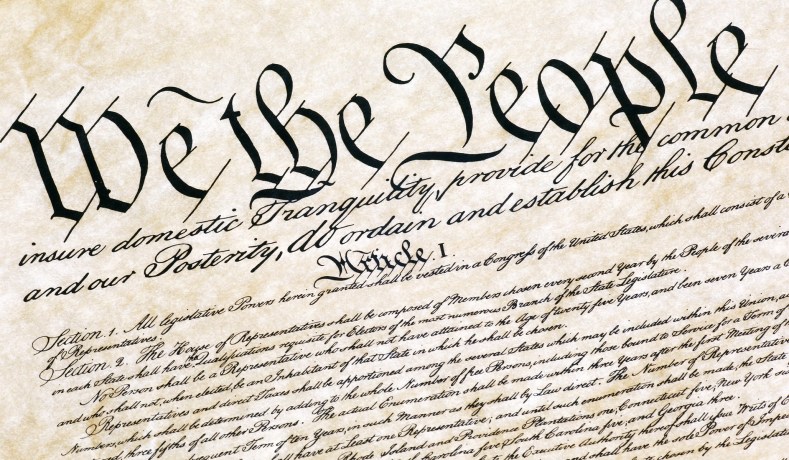 We the People
insure domestic Tranquility, provide for the common
and our Posterity, do ordain and establish this Const
Article. I.
Section. 1. All legislative Powers herein granted shall be vested in a Congress of the United States, which shall consist of a
of Representatives.
Section. 2. The House of Representatives shall be composed of Members chosen every second Year by the People of the severa
in each State shall have the Qualifications requisite for Electors of the most numerous Branch of the State Legislature.
No Person shall be a Representative who shall not have attained to the Age of twenty five Years, and been seven Years a C
and who shall not, when elected, be an Inhabitant of that State in which he shall be chosen.
Representatives and direct Taxes shall be apportioned among the several States which may be included within this Union, a
Numbers, which shall be determined by adding to the whole Number of free Persons, including those bound to Service for a Term of
three fifths of all other Persons. The actual Enumeration shall be made within three Years after the first Meeting of
Term of ten Years, in such Manner as they shall by Law direct. The Number of Representative
have at Least one Representative; and until such enumeration shall be made, the State
Rhode Island and Providence Plantations one, Connecticut five, New York six
Carolina five, South Carolina five, and Georgia three.
the Executive Authority thereof shall issue Writs of
and shall have the sole Power of Impe
chosen by the Legislat